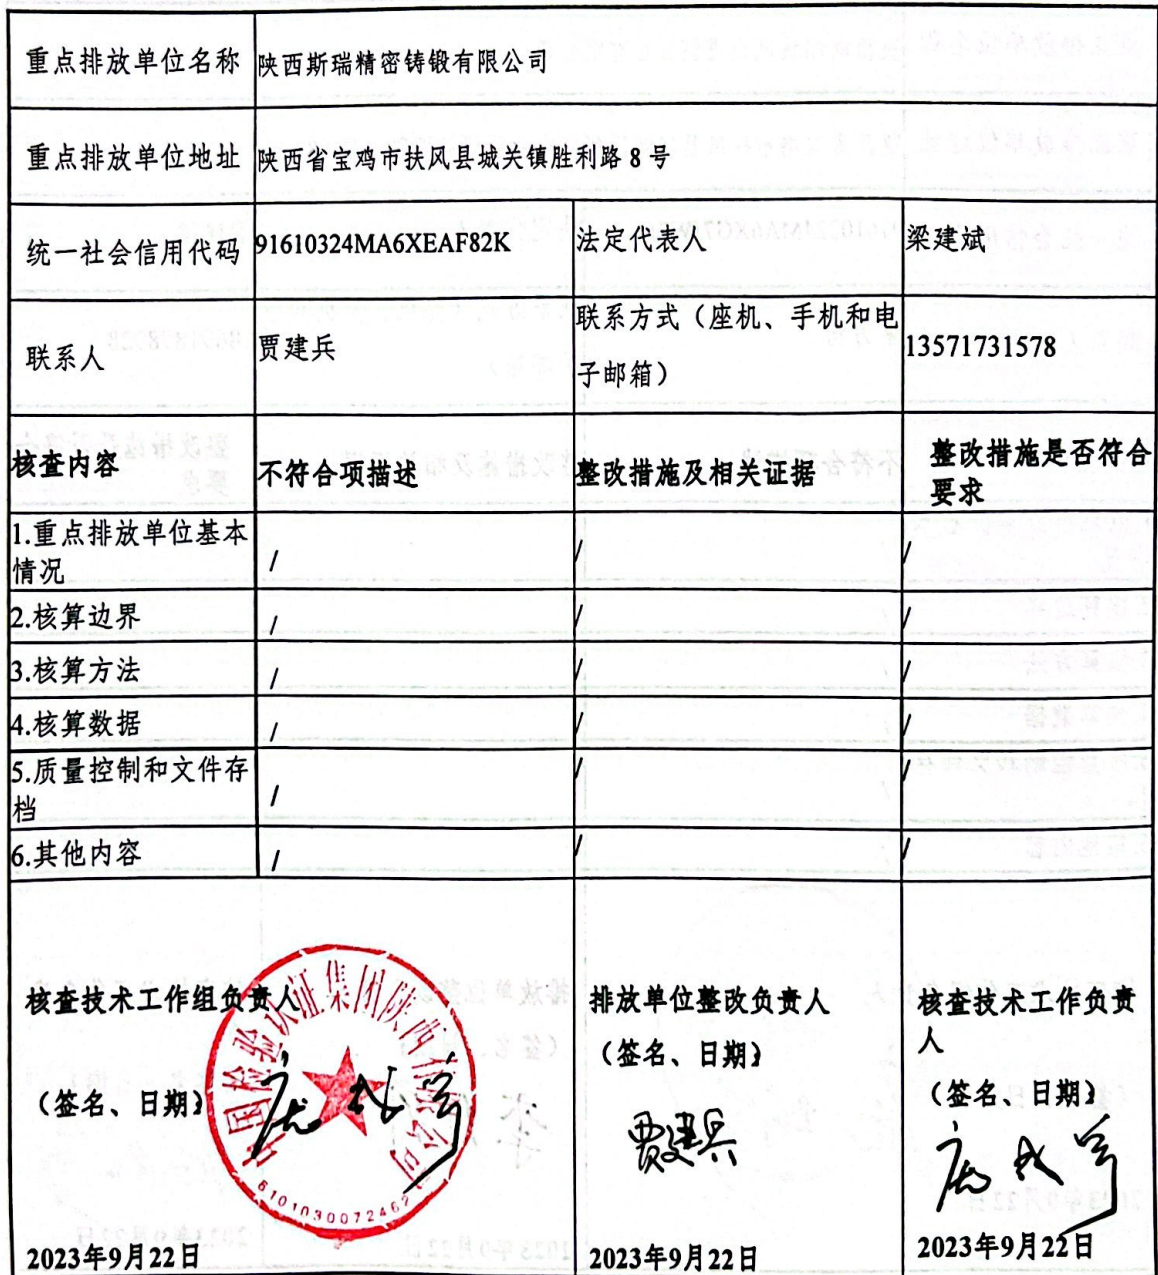 重点排放单位名称 陕西斯瑞精密铸锻有限公司
重点排放单位地址 陕西省宝鸡市扶风县城关镇胜利路 8 号
统一社会信用代码 91610324MA6XEAF82K 法定代表人 梁建斌
联系人 贾建兵 联系方式（座机、手机和电
子邮箱） 13571731578
核查内容 不符合项描述 整改措施及相关证据 整改措施是否符合
要求
1.重点排放单位基本
情况 / / /
2.核算边界 / / /
3.核算方法 / / /
4.核算数据 / / /
5.质量控制和文件存
档 / / /
6.其他内容 / / /
核查技术工作组负责人
（签名、日期）
2023年9月22日
中国检验认证集团陕西有限公司
6101030072462
排放单位整改负责人
（签名、日期）
贾建兵
2023年9月22日
核查技术工作负责
人
（签名、日期）
2023年9月22日